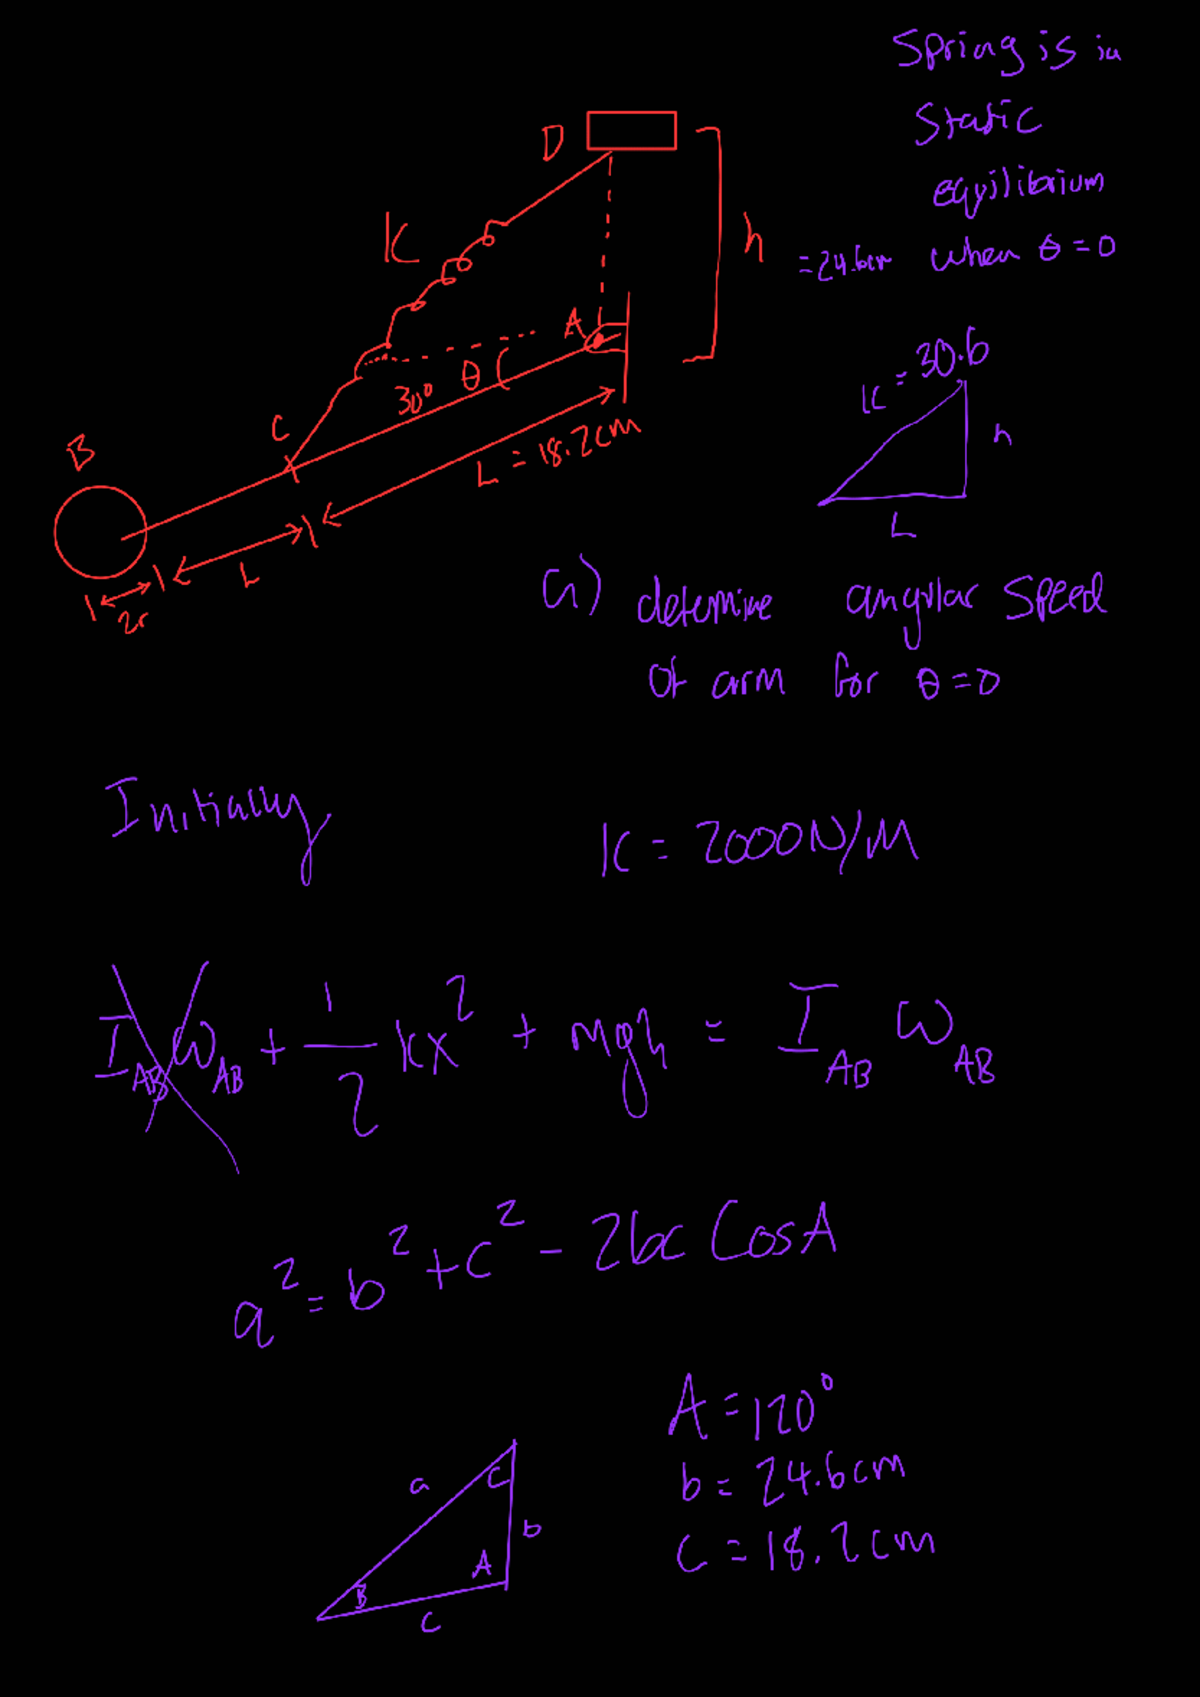 Spring is in
Static
equilibrium
= 24.6cm when θ = 0
D
K
h
A
30° θ
C
L = 18.2cm
B
L
2r
K = 30.6
h
L
a) determine angular Speed
of arm for θ = 0
Initially,
K = 2000N/M
I_AB ω_AB + 1/2 kx² + mgh = I_AB ω_AB
a² = b² + c² - 2bc CosA
A = 120°
b = 24.6cm
c = 18.2cm
a
C
b
A
B
c